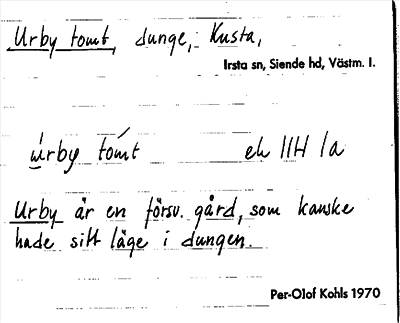 Urby tomt, dunge, Kusta,
Irsta sn, Siende hd, Västm. l.
úrby tómt ek IIH 1a
Urby är en försv. gård, som kanske
hade sitt läge i dungen.
Per-Olof Kohls 1970